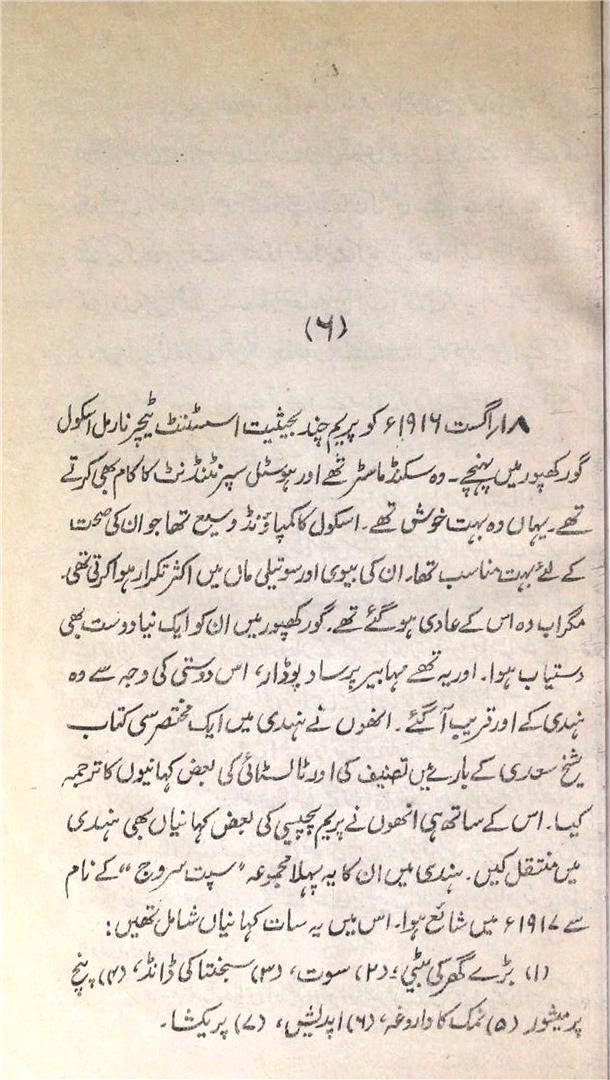 (۶)
۱۸/اگست ۱۹۱۶ء کو پریم چند بحیثیت اسسٹنٹ ٹیچر نارمل اسکول
گورکھپور میں پہنچے۔ وہ سکنڈ ماسٹر تھے اور ہوسٹل سپرنٹنڈنٹ کا کام بھی کرتے
تھے۔ یہاں وہ بہت خوش تھے۔ اسکول کا کمپاؤنڈ وسیع تھا جو ان کی صحت
کے لئے بہت مناسب تھا۔ ان کی بیوی اور سوتیلی ماں میں اکثر تکرار ہوا کرتی تھی۔
مگر اب وہ اس کے عادی ہو گئے تھے۔ گورکھپور میں ان کو ایک نیا دوست بھی
دستیاب ہوا۔ اور یہ تھے مہابیر پرساد پوڈار، اس دوستی کی وجہ سے وہ
ہندی کے اور قریب آ گئے۔ انھوں نے ہندی میں ایک مختصر سی کتاب
شیخ سعدی کے بارے میں تصنیف کی اور ٹالسٹائی کی بعض کہانیوں کا ترجمہ
کیا۔ اس کے ساتھ ہی انھوں نے پریم پچیسی کی بعض کہانیاں بھی ہندی
میں منتقل کیں۔ ہندی میں ان کا یہ پہلا مجموعہ "سپت سروج" کے نام
سے ۱۹۱۷ء میں شائع ہوا۔ اس میں یہ سات کہانیاں شامل تھیں:
(۱) بڑے گھر کی بیٹی، (۲) سوت، (۳) سجنتا کی ڈانڈ، (۴) پنچ
پرمیشور (۵) نمک کا داروغہ، (۶) اپدیش، (۷) پریکشا۔